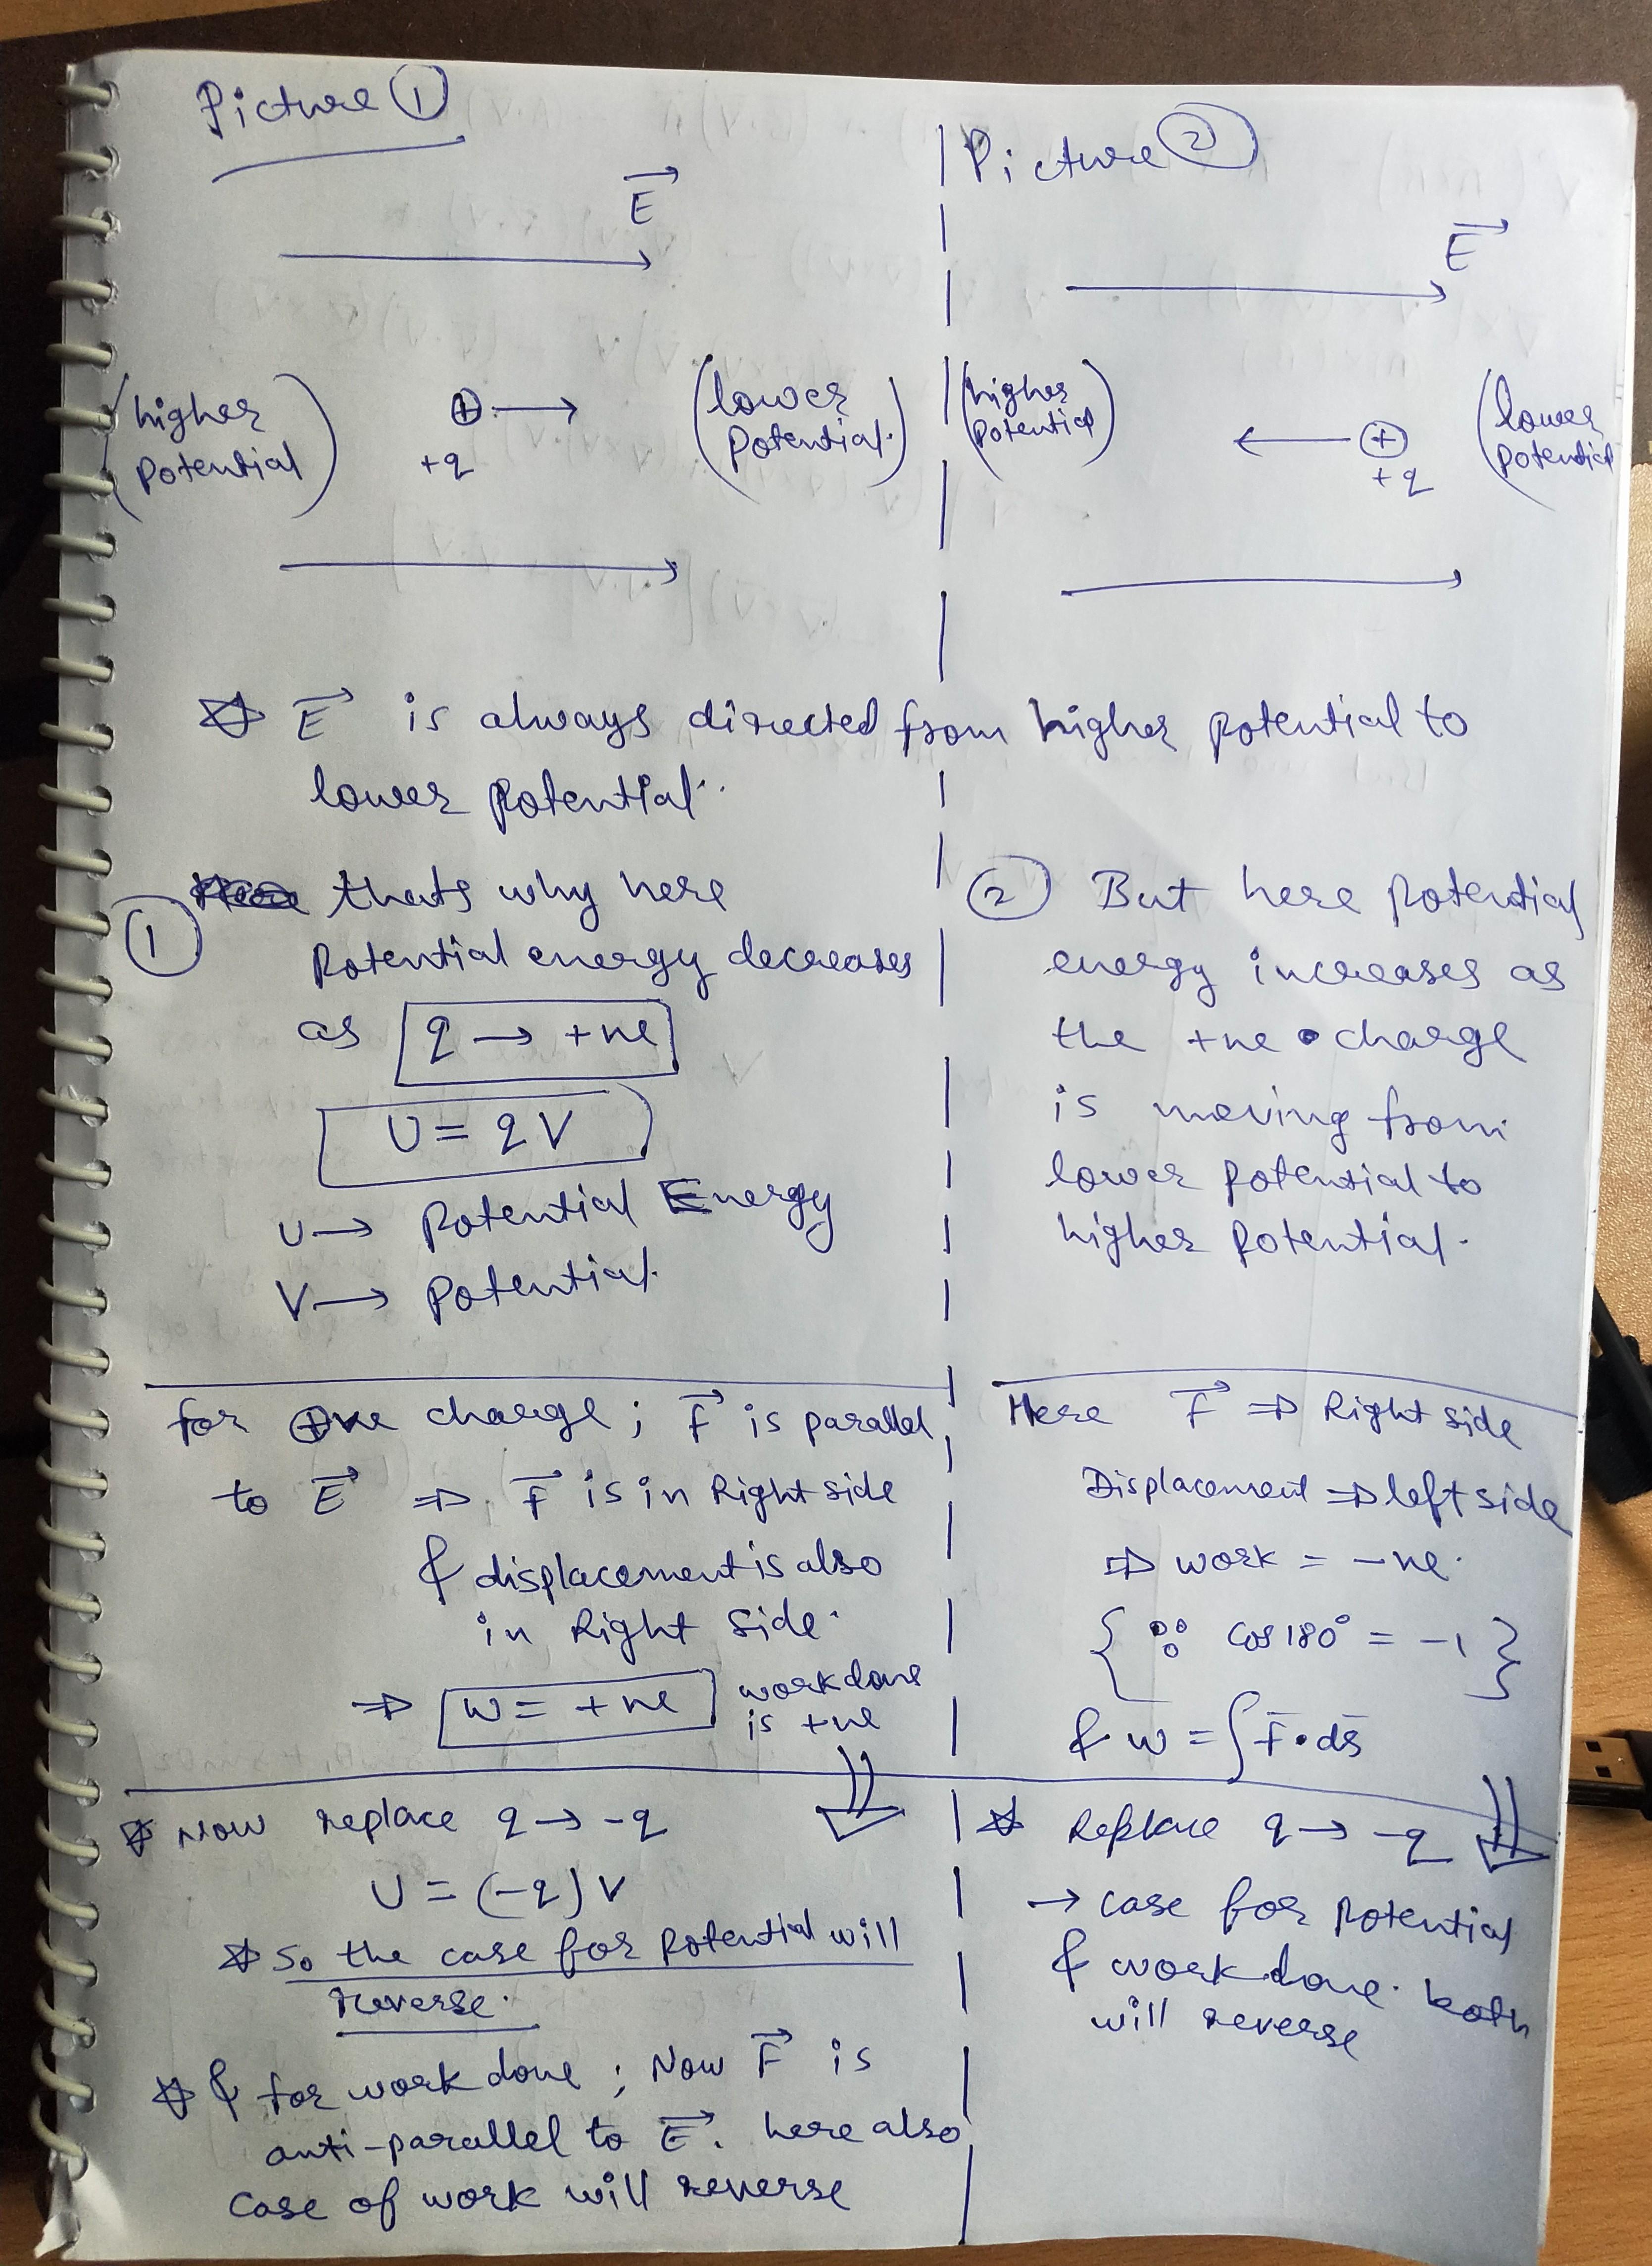 Picture ①
E
(higher
Potential)
⊕
+q
(lower
Potential.)
Picture ②
E
(higher
Potential)
⊕
+q
(lower
Potential)
☆ E is always directed from higher potential to
lower potential.
① thats why here
Potential energy decreases
as q → +ve
U = qV
U → Potential Energy
V → Potential.
② But here potential
energy increases as
the +ve charge
is moving from
lower potential to
higher potential.
for +ve charge; F is parallel
to E ⇒ F is in Right side
& displacement is also
in Right Side.
⇒ w = +ve work done
is +ve
Here F ⇒ Right side
Displacement ⇒ left side
⇒ work = -ve.
{ ∵ cos 180° = -1 }
& w = ∫F·ds
☆ Now replace q → -q
U = (-q)V
☆ So the case for potential will
reverse.
☆ & for work done ; Now F is
anti-parallel to E. here also
case of work will reverse
☆ Replace q → -q
→ case for potential
& work done both
will reverse